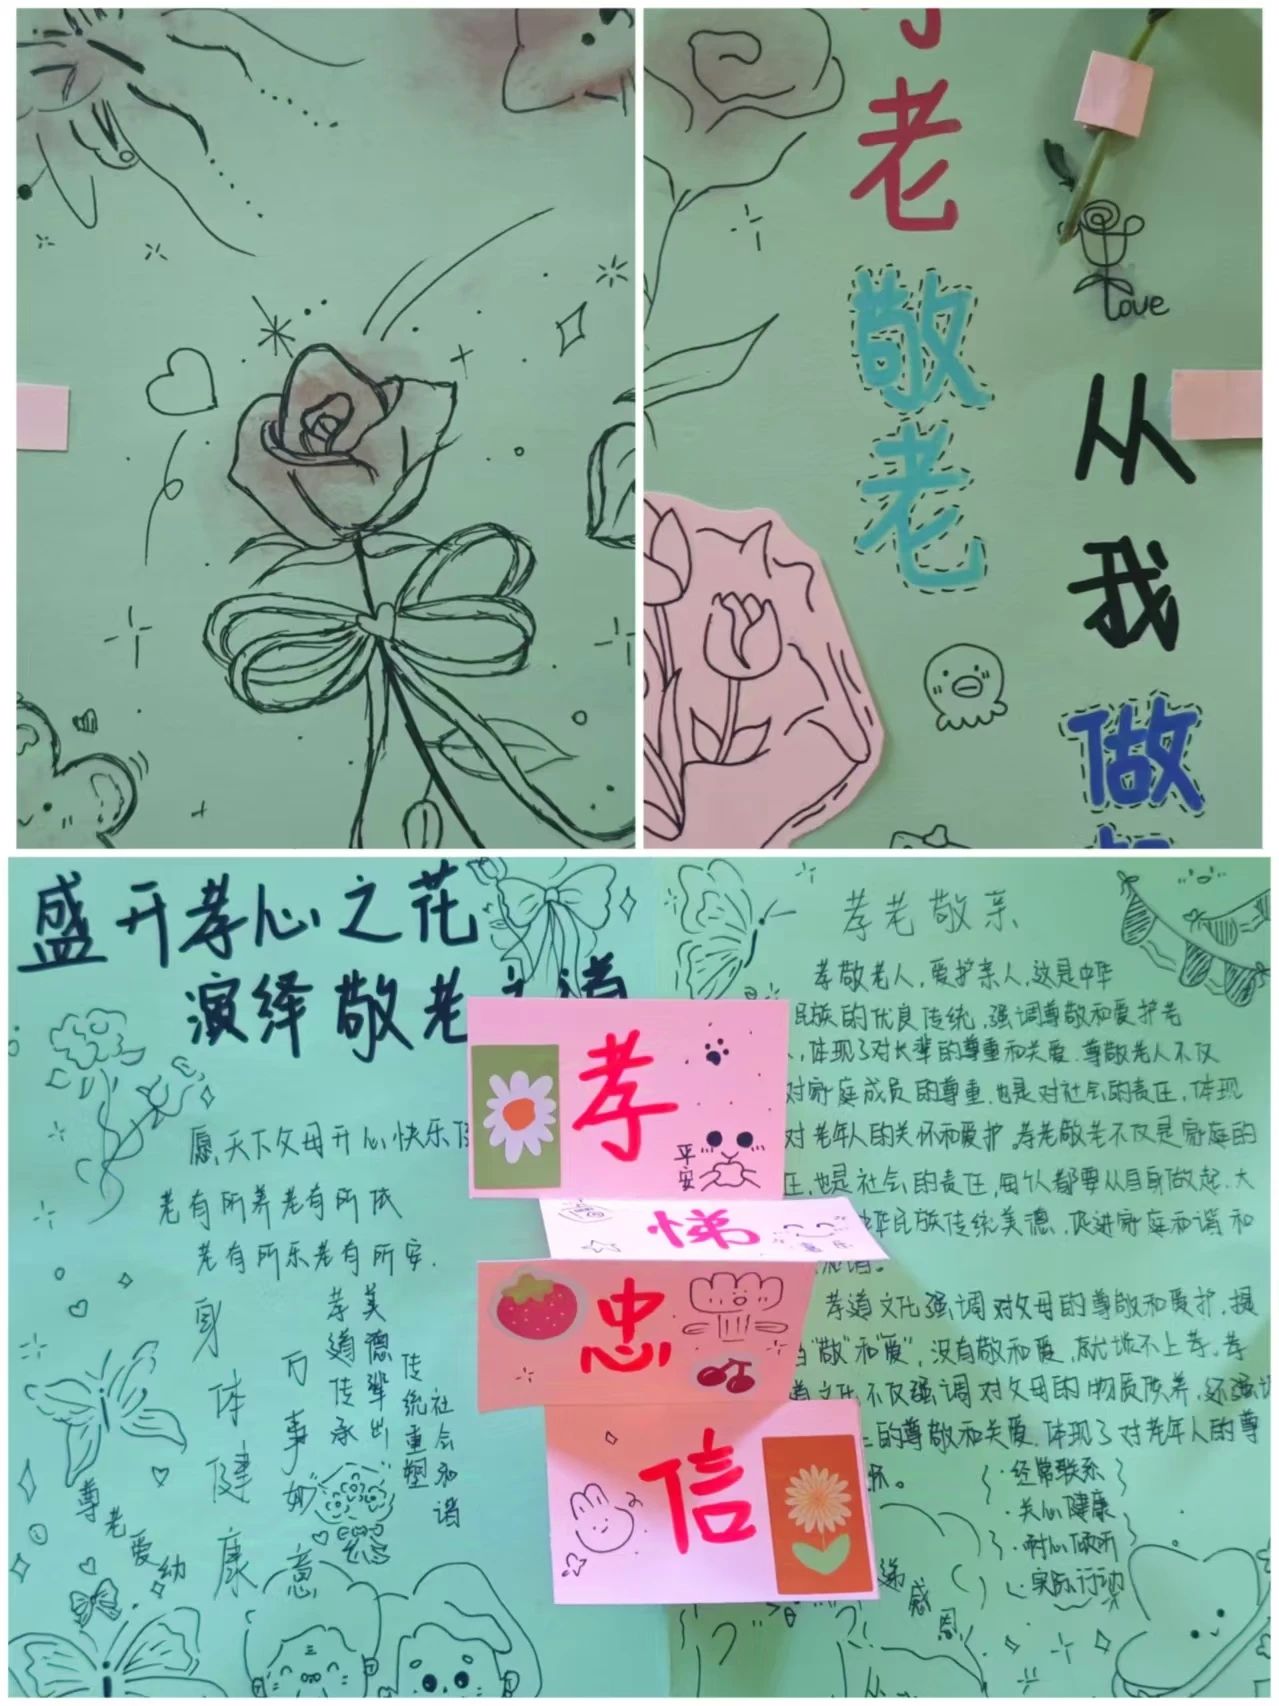 老
敬
老
love
从
我
做
盛开孝心之花
演绎敬老之道
愿天下父母开心快乐
老有所养老有所依
老有所乐老有所安.
身体健康
万事如意
孝道传承
美德辈出
传统重塑
社会和谐
尊老爱幼
孝
平安
悌
喜乐
忠
信
孝老敬亲
孝敬老人,爱护亲人,这是中华
民族的优良传统,强调尊敬和爱护老
,体现了对长辈的尊重和关爱.尊敬老人不仅
对家庭成员的尊重,也是对社会的责任,体现
对老年人的关怀和爱护.孝老敬老不仅是家庭的
任,也是社会的责任,每个人都要从自身做起.大
华民族传统美德,促进家庭和谐和
谐。
孝道文化强调对父母的尊敬和爱护,提
"敬"和"爱",没有敬和爱,就谈不上孝.孝
道文化不仅强调对父母的物质供养,还强调
上的尊敬和关爱.体现了对老年人的尊
怀。
·经常联系
·关心健康
·耐心倾听
·实际行动
递感恩
从